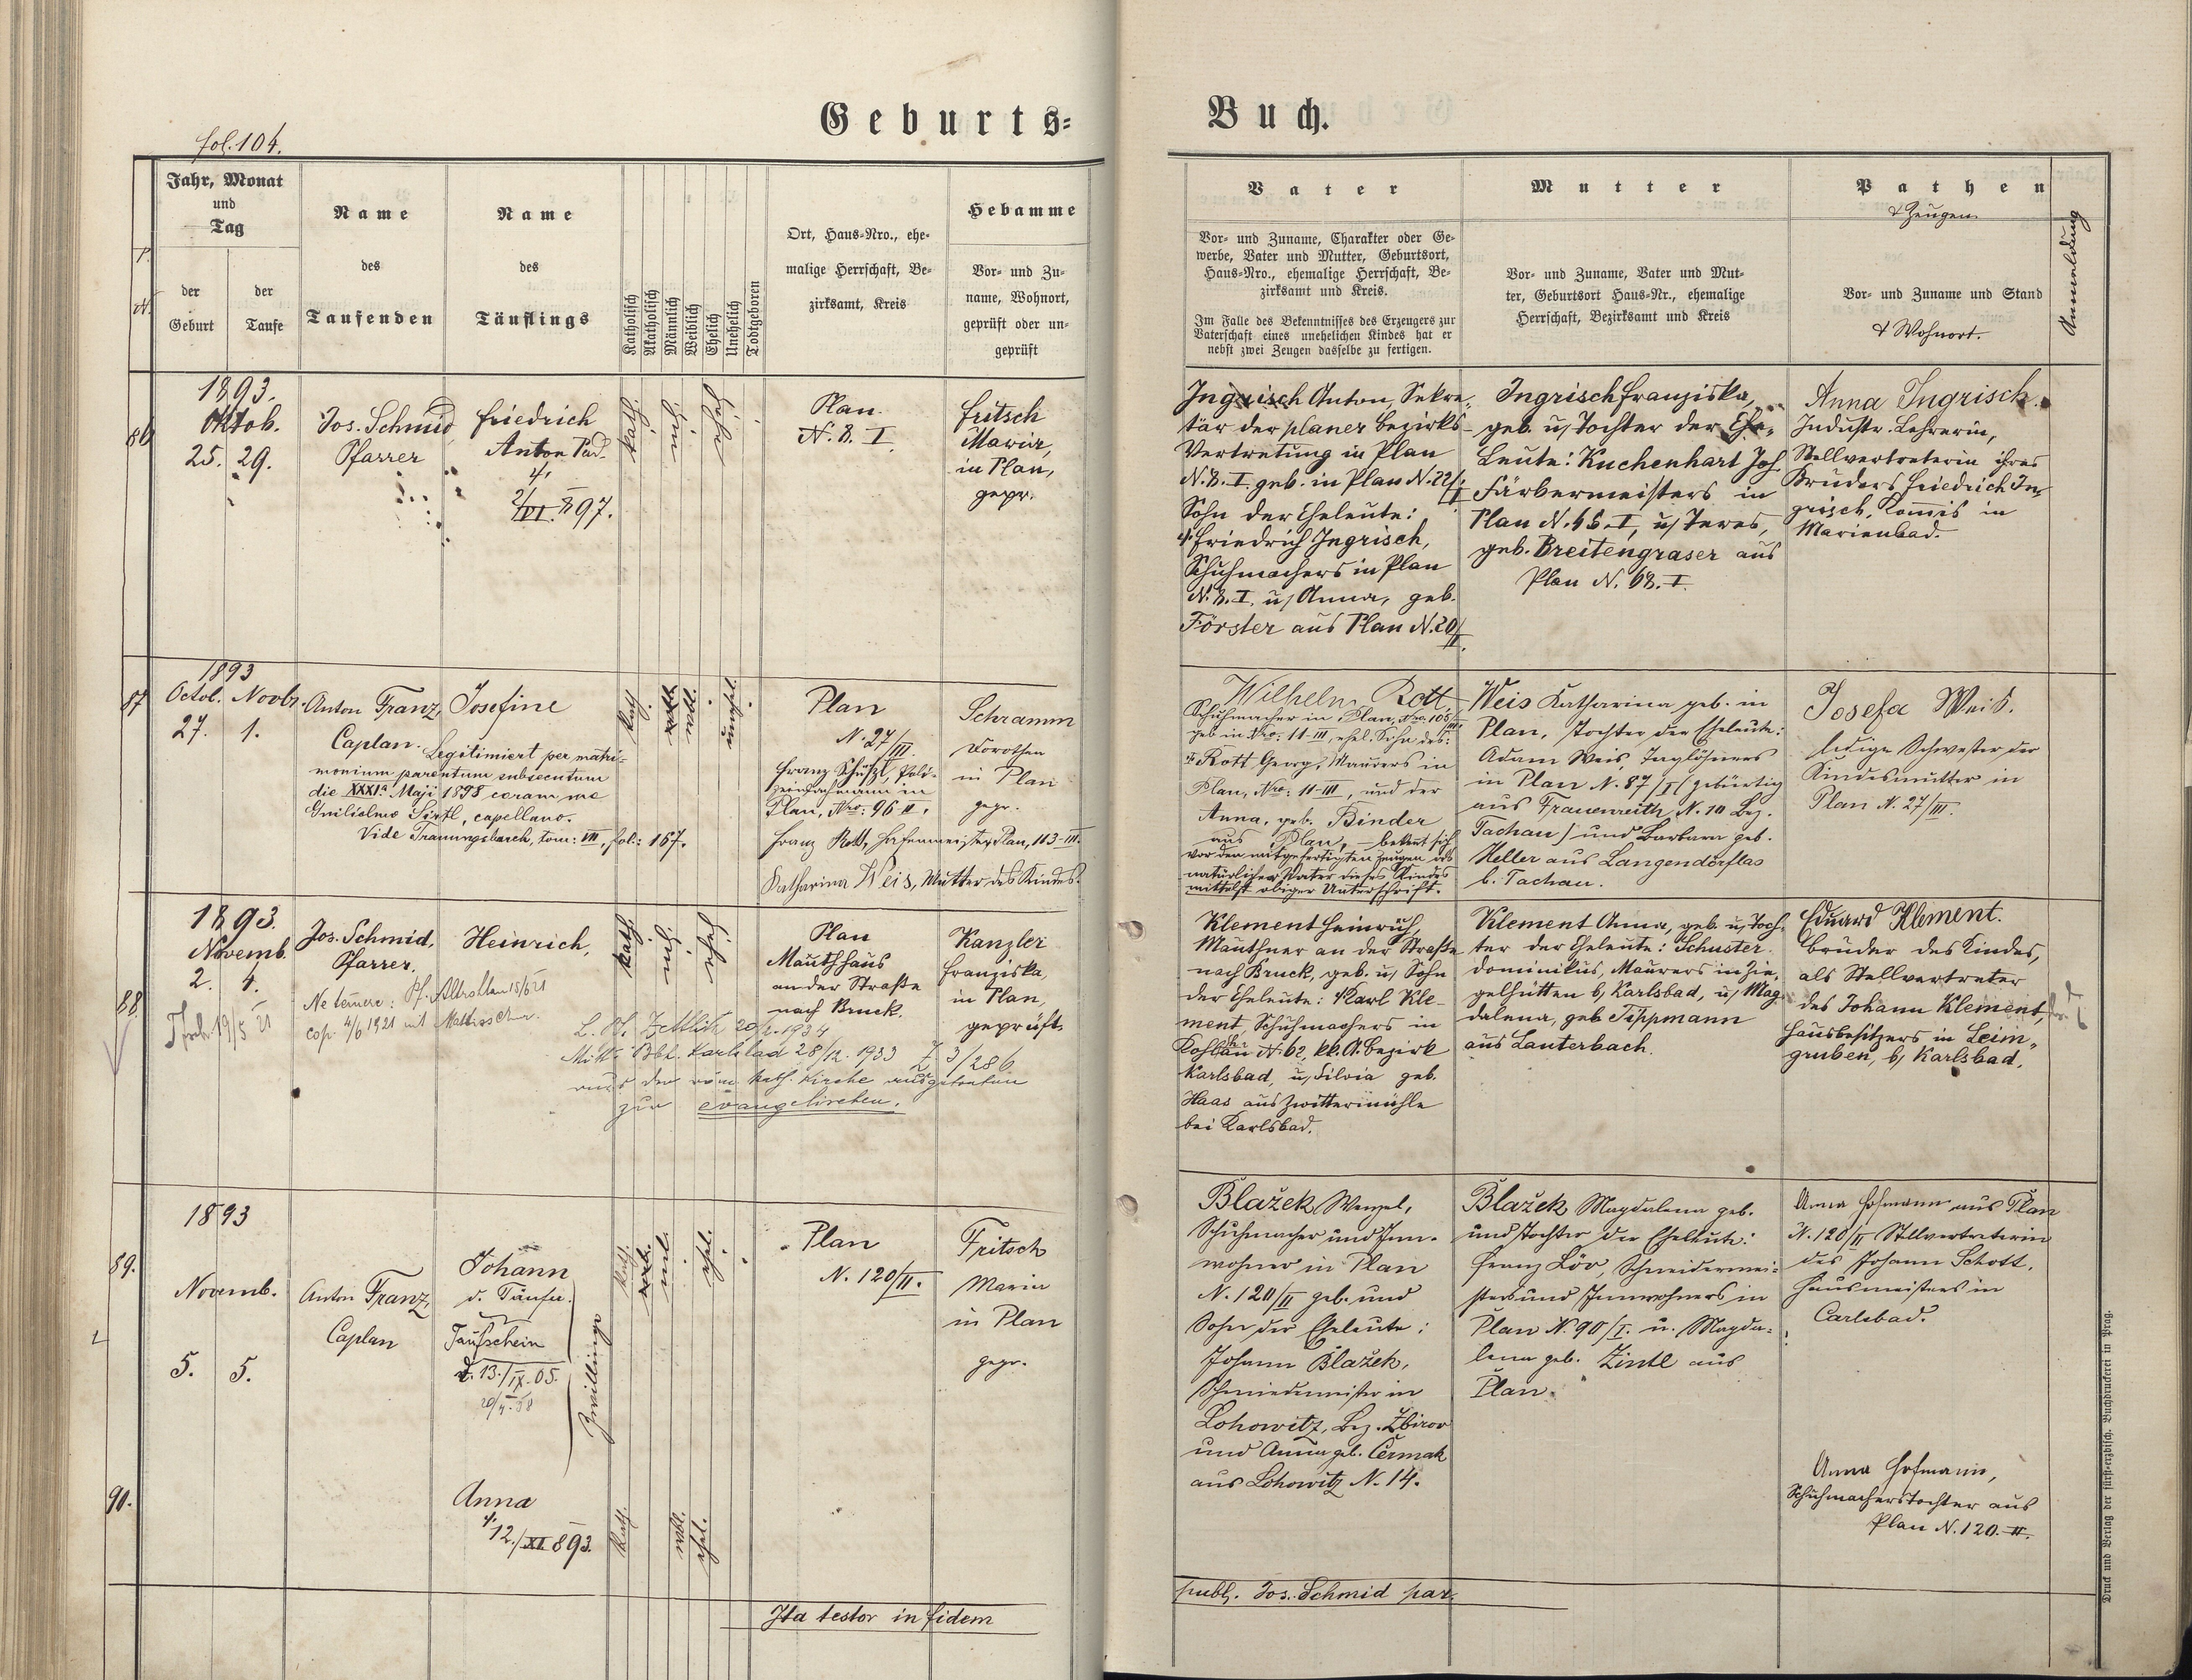 fol. 104.
Geburts=
Buch.
Jahr, Monat
und
Tag
der
Geburt
der
Taufe
Name
des
Taufenden
Name
des
Täuflings
Katholisch
Akatholisch
Männlich
Weiblich
Ehelich
Unehelich
Todtgeboren
Ort, Haus=Nro., ehe=
malige Herrschaft, Be=
zirksamt, Kreis
Hebamme
Vor= und Zu=
name, Wohnort,
geprüft oder un=
geprüft
Vater
Vor= und Zuname, Charakter oder Ge=
werbe, Vater und Mutter, Geburtsort,
Haus=Nro., ehemalige Herrschaft, Be=
zirksamt und Kreis.
Im Falle des Bekenntnisses des Erzeugers zur
Vaterschaft eines unehelichen Kindes hat er
nebst zwei Zeugen dasselbe zu fertigen.
Mutter
Vor= und Zuname, Vater und Mut=
ter, Geburtsort Haus=Nr., ehemalige
Herrschaft, Bezirksamt und Kreis
Pathen
& Zeugen
Vor= und Zuname und Stand
& Wohnort.
Anmerkung
86
1893.
Oktob.
25. 29.
Jos. Schmid
Pfarrer
Friedrich
Anton Pad.
2/VI. 897.
kath.
ehel.
Plan
N. 8. I.
Fritsch
Maria,
in Plan,
gepr.
Ingrisch Anton, Sekre=
tär der planer Bezirks=
Vertretung in Plan
N. 8. I. geb. in Plan N. 22/I.
Sohn der Eheleute:
Friedrich Ingrisch,
Schuhmachers in Plan
N. 8. I. u/ Anna, geb.
Förster aus Plan N. 20/II.
Ingrisch Franziska,
geb. u/ Tochter der Ehe=
Leute: Kuchenhart Joh.
Färbermeisters in
Plan N. 46. I, u/ Teres,
geb. Breitengraser aus
Plan N. 68. I.
Anna Ingrisch.
Industr. Lehrerin,
Stellvertreterin ihres
Bruders Friedrich In=
grisch, Komis in
Marienbad.
87
1893
Octob. Novbr.
27. 1.
Anton Franz,
Caplan.
Josefine
Legitimiert per matri=
monium parentum subsecutum
die XXXIa Maji 1898 coram me
Guilielmo Sirtl, capellano.
Vide Trauungsbuch, tom: VII, fol: 167.
kath.
wbl.
unehel.
Plan
N. 27/III.
Franz Schüßl, Poli=
zeiwachmann in
Plan, Nro: 96 II.
Franz Rott, Hafenmeister Plan, 113-III.
Katharina Weis, Mutter des Kindes.
Schramm
Dorothea
in Plan
gepr.
Wilhelm Rott,
Schuhmacher in Plan, Nro. 105/III.
geb in Nro: 11-III, ehel. Sohn des:
Rott Georg, Maurers in
Plan, Nro: 11-III, und der
Anna, geb. Binder
aus Plan, – bekennt sich
vor den mitgefertigten Zeugen als
natürlicher Vater dieses Kindes
mittelst obiger Unterschrift.
Weis Katharina geb. in
Plan, Tochter der Eheleute:
Adam Weis, Taglöhners
in Plan N. 87/I (gebürtig
aus Frauenreith N. 10 Bez.
Tachau) und Barbara geb.
Heller aus Langendörflas
b. Tachau.
Josefa Weis.
ledige Schwester der
Kindesmutter in
Plan N. 27/III.
88
1893.
Novemb.
2. 4.
19/5 21
Jos. Schmid,
Pfarrer.
Heinrich,
Ne temere: Pf. Altrohlau 15/6 21
cop. 4/6 1921 mit
Zettlitz 20/2. 1934
Karlsbad 28/12. 1933 Z 3/286
aus der röm. kath. Kirche ausgetreten
zur evangelischen.
kath.
ehel.
Plan
Mauthhaus
an der Straße
nach Bruck.
Kanzler
Franziska,
in Plan,
geprüft.
Klement Heinrich,
Mauthner an der Straße
nach Bruck, geb. u/ Sohn
der Eheleute: Karl Kle=
ment, Schuhmachers in
N. 62, kk. A. Bezirk
Karlsbad, u/ Silvia geb.
Haas aus Zwittermühle
bei Karlsbad.
Klement Anna, geb. u/ Toch=
ter der Eheleute: Schuster
Dominikus, Maurers in Zie=
gelhütten b/ Karlsbad, u/ Mag=
dalena, geb. Tippmann
aus Lauterbach.
Eduard Klement.
Bruder des Kindes,
als Stellvertreter
des Johann Klement,
Hausbesitzers in Leim=
gruben, b/ Karlsbad.
89.
1893
Novemb.
5. 5.
Anton Franz,
Caplan
Johann
d. Täufer.
Taufschein
d. 13./IX. 05.
Zwillinge
kath.
ml.
ehel.
Plan
N. 120/II.
Fritsch
Maria
in Plan
gepr.
Blažek Wenzel,
Schuhmacher und Inn=
wohner in Plan
N. 120/II geb. und
Sohn der Eheleute:
Johann Blažek,
Schmiedemeister in
Lohowitz, Bez. Zbirov
und Anna geb. Čermak
aus Lohowitz N. 14.
Blažek Magdalena geb.
und Tochter der Eheleute:
Franz Löv, Schneidermei=
sters und Innwohners in
Plan N. 90/I. u. Magda=
lena geb. Zintl aus
Plan.
Anna Hofmann aus Plan
N. 120/II Stellvertreterin
des Johann Schott,
Hausmeisters in
Carlsbad.
90.
Anna
12./XI 893.
kath.
wbl.
ehel.
Anna Hofmann,
Schuhmacherstochter aus
Plan N. 120. II.
Ita testor in fidem
publ. Jos. Schmid par.
Druck und Verlag der fürst=erzbisch. Buchdruckerei in Prag.